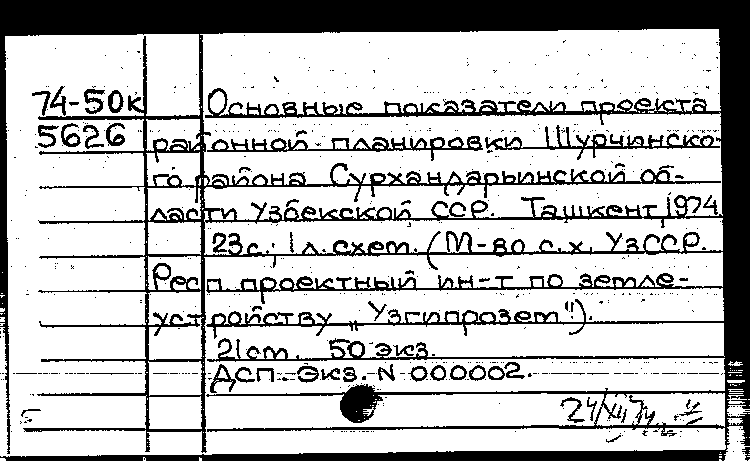 74-50к Основные показатели проекта
5626 районной планировки Шурчинско-
го района Сурхандарьинской об-
ласти Узбекской ССР. Ташкент, 1974
23с.; 1 л. схем. (М-во с.х. УзССР.
Респ. проектный ин-т по земле-
устройству „Узгипрозем").
21 см. 50 экз.
ДСП. Экз. N 000002.
24/XII 74